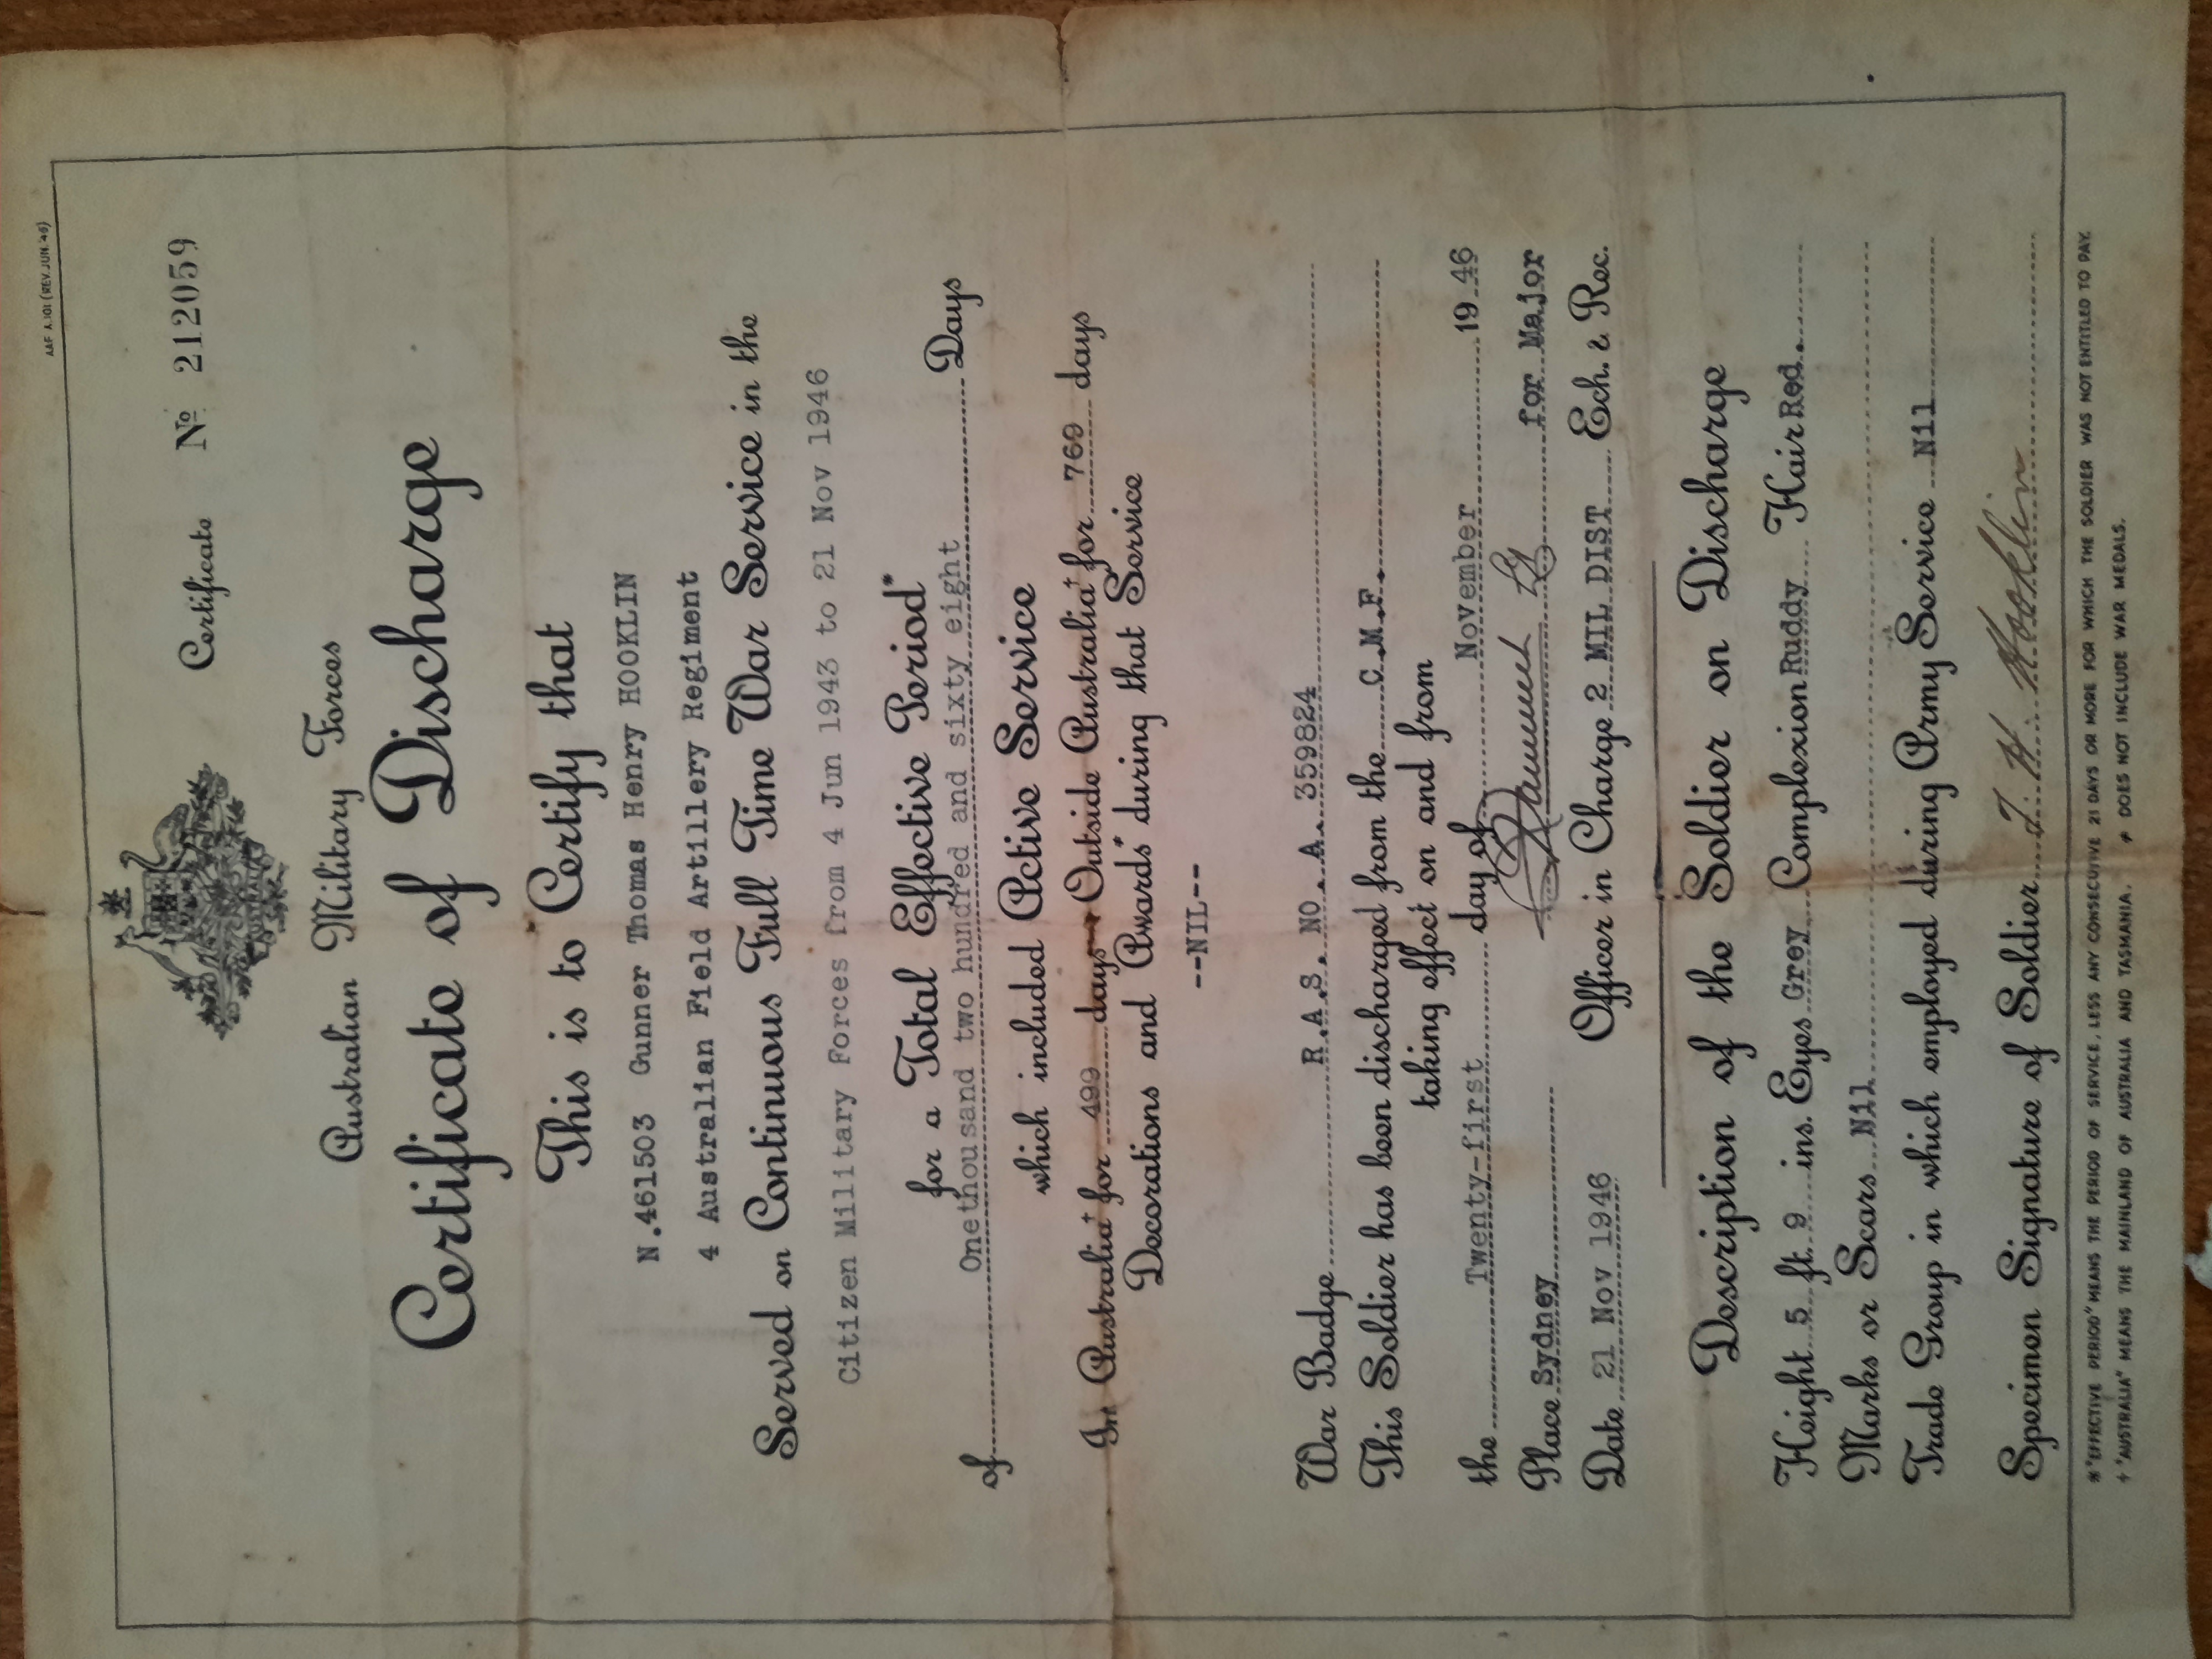 AAF A.101 (REV. JUN. '46)
Certificate No 212059
AUSTRALIA
Australian Military Forces
Certificate of Discharge
This is to Certify that
N.461503 Gunner Thomas Henry HOOKLIN
4 Australian Field Artillery Regiment
Served on Continuous Full Time War Service in the
Citizen Military Forces from 4 Jun 1943 to 21 Nov 1946
for a Total Effective Period*
of Onethousand two hundred and sixty eight Days
which included Active Service
In Australia† for 499 days Outside Australia† for 769 days
Decorations and Awards≠ during that Service
--NIL--
War Badge R.A.S. NO. A. 359824
This Soldier has been discharged from the C.M.F.
taking effect on and from
the Twenty-first day of November 1946
Place Sydney for Major
Date 21 Nov 1946 Officer in Charge 2 MIL DIST Ech. & Rec.
Description of the Soldier on Discharge
Height 5 ft. 9 ins. Eyes Grey Complexion Ruddy Hair Red.
Marks or Scars Nil
Trade Group in which employed during Army Service Nil
Specimen Signature of Soldier T. H. Hooklin
*"EFFECTIVE PERIOD" MEANS THE PERIOD OF SERVICE, LESS ANY CONSECUTIVE 21 DAYS OR MORE FOR WHICH THE SOLDIER WAS NOT ENTITLED TO PAY.
† "AUSTRALIA" MEANS THE MAINLAND OF AUSTRALIA AND TASMANIA. ≠ DOES NOT INCLUDE WAR MEDALS.